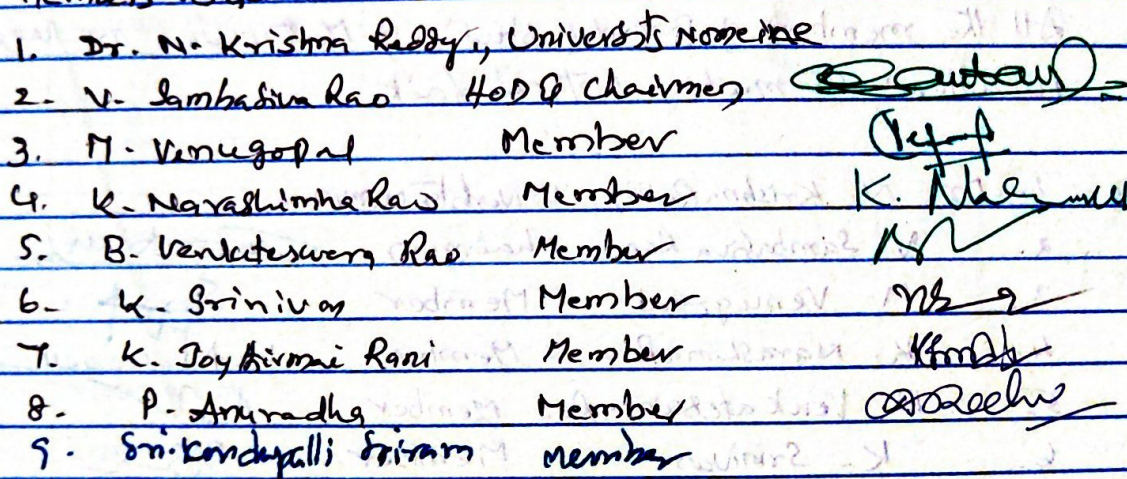 1. Dr. N. Krishna Reddy, University Nomeine
2- V. Sambasiva Rao HOD & Chairmen
3. M. Venugopal Member
4. K. Narashimha Rao Member K.
5. B. Venkateswera Rao Member
6- K. Srinivas Member
7. K. Joy Rani Member
8- P. Anuradha Member
9. Sri. Kondapalli Sriram member